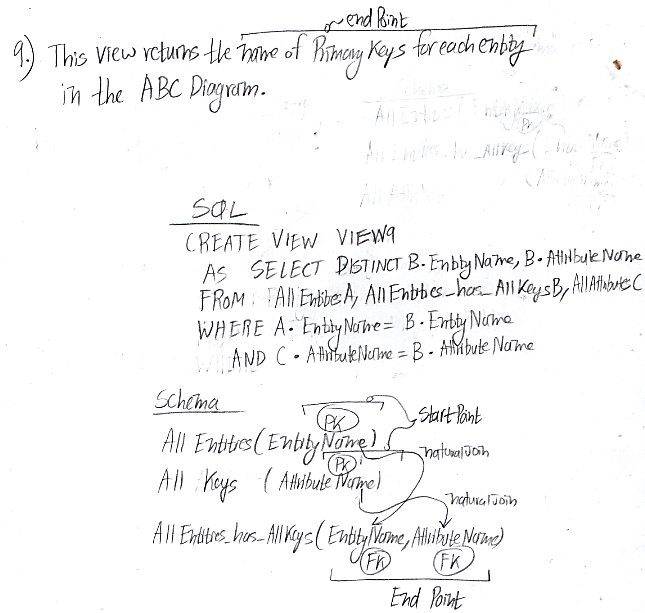 end Point
9.) This view returns the name of Primary Keys for each entity
in the ABC Diagram.
SQL
CREATE VIEW VIEW9
AS SELECT DISTINCT B.EntityName, B.AttributeName
FROM All Entities A, All Entities_has_All Keys B, All Attribute C
WHERE A.EntityName = B.EntityName
AND C.AttributeName = B.AttributeName
Schema
PK
Start Point
All Entities (EntityName)
natural Join
PK
All Keys (AttributeName)
natural Join
All Entities_has_All Keys (EntityName, AttributeName)
FK FK
End Point